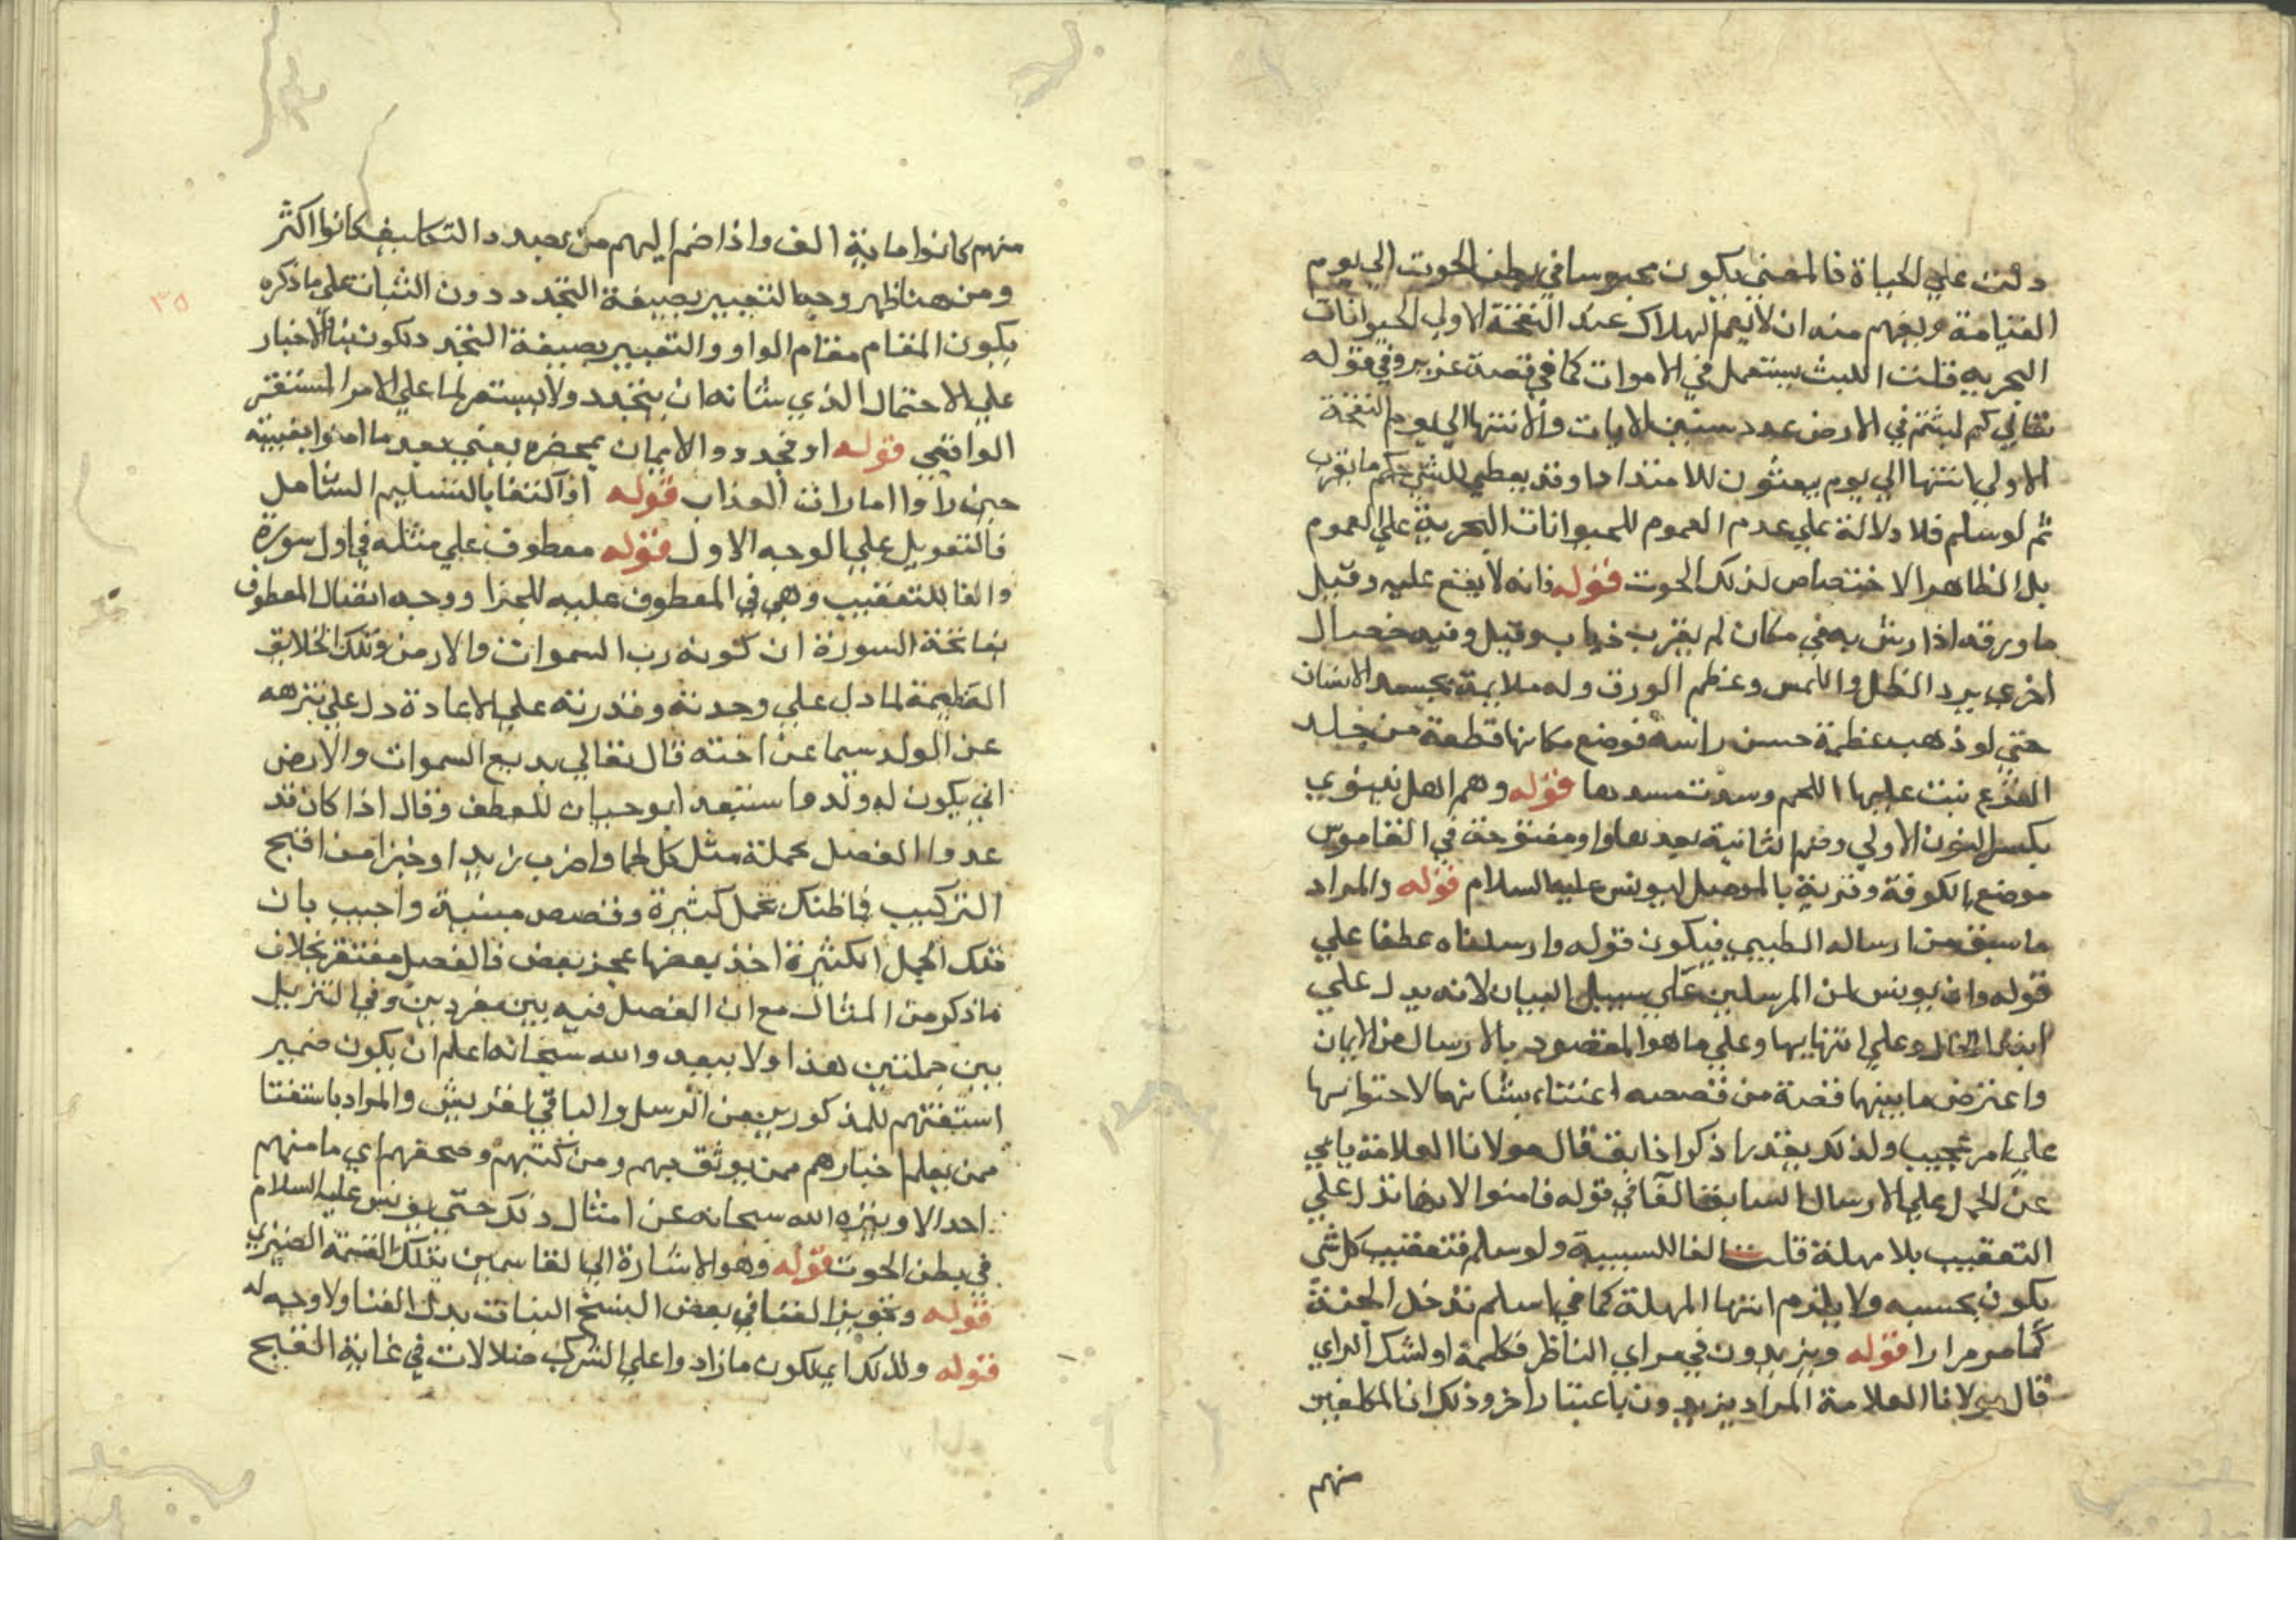 دلت علي الحياة فالمعني يكون محبوسا في بطن الحوت الي يوم
القيامة ويفهم منه ان لا يعم الهلاك عند النفخة الاولي الحيوانات
البحرية قلت اللبث يستعمل في الاموات كما في قصة عزير وفي قوله
تعالي كم لبثتم في الارض عدد سنين الايات والانتها الي يوم النفخة
الاولي انتها الي يوم يبعثون للامتداد وقد يعطي للشي حكم ما يقرب
ثم لو سلم فلا دلالة علي عدم العموم للحيوانات البحرية علي العموم
بل الظاهر الاختصاص لذلك الحوت قوله فانه لا يقع عليه وقيل
ما ورقه اذا رش به في مكان لم يقربه ذباب وقيل وفيه خصال
اخري برد الظل واللمس وعظم الورق وله ملايمة بجسد الانسان
حتي لو ذهب عظمة حسن راسه فوضع مكانها قطعة من جلد
القرع نبت عليها اللحم وسدت مسدها قوله وهم اهل نينوي
بكسر النون الاولي وضم الثانية بعدها واو مفتوحة في القاموس
موضع بالكوفة وقرية بالموصل ليونس عليه السلام قوله والمراد
ما سبق من ارساله فيكون قوله وارسلناه عطفا علي
قوله وان يونس لمن المرسلين علي سبيل البيان لانه يدل علي
ابتدا الحال وعلي انتهايها وعلي ما هو المقصود بالارسال من الايمان
واعترض ما بينهما قصة من قصصه اعتناء بشانها لاحتوائها
علي امر عجيب ولذلك يقدر اذكر اذ ابق قال مولانا العلامة يابي
عن الحمل علي الارسال السابق الفا في قوله فامنوا لانها تدل علي
التعقيب بلا مهلة قلت الفا للسببية ولو سلم فتعقيب كل شي
يكون بحسبه ولا يلزم انتها المهلة كما في اسلم تدخل الجنة
كما مر مرارا قوله ويزيدون في مراي الناظر فكلمة او لشك الراي
قال مولانا العلامة المراد يزيدون باعتبار اخر وذلك ان المكلفين
منهم
منهم كانوا ماية الف واذا ضم اليهم من بصدد التكليف كانوا اكثر
ومن هنا ظهر وجه التعبير بصيغة التجدد دون الثبات علي ما ذكره
يكون المقام مقام الواو والتعبير بصيغة التجدد دلكون بنا الاخبار
علي الاحتمال الذي شانه ان يتجدد ولا يستمر لما علي الامر المستقر
الواقعي قوله او فجددوا الايمان بمحضره يعني بعد ما امنوا بغيبته
حين راوا امارات العذاب قوله او اكتفا بالتسليم الشامل
فالتعويل علي الوجه الاول قوله معطوف علي مثله في اول سورة
والفا للتعقيب وهي في المعطوف عليه للجزا ووجه اتصال المعطوف
بفاتحة السورة ان كونه رب السموات والارض وتلك الخلايق
العظيمة لما دل علي وحدته وقدرته علي الاعادة دل علي تنزهه
عن الولد سيما عن اخته قال تعالي بديع السموات والارض
اني يكون له ولد وما ستبعد ابو حيان للعطف وقال اذا كان قد
عدوا الفصل بجملة مثل كل لحما واضرب زيدا وخبزا من اقبح
التركيب فما ظنك بجمل كثيرة وقصص مبنية واجيب بان
تلك الجمل الكثيرة اخذ بعضها بحجز بعض فالفصل مغتفر بخلاف
ما ذكر من المثال مع ان الفصل فيه بين مفردين وفي التنزيل
بين جملتين هذا ولا يبعد والله سبحانه اعلم ان يكون ضمير
استفتهم للمذكورين من الرسل والباقي لقريش والمراد باستفتا
ممن يعلم اخبارهم ممن يوثق بهم ومن كتبهم وصحفهم اي ما منهم
احد الا وينزه الله سبحانه عن امثال ذلك حتي يونس عليه السلام
في بطن الحوت قوله وهو الاشارة الي القاسمين بتلك القسمة الضيزي
قوله وتجويز الفنا في بعض النسخ البنات بدل الفنا ولا وجه له
قوله ولذلك اي لكون ما زادوا علي الشرك ضلالات في غاية القبح
٣٥